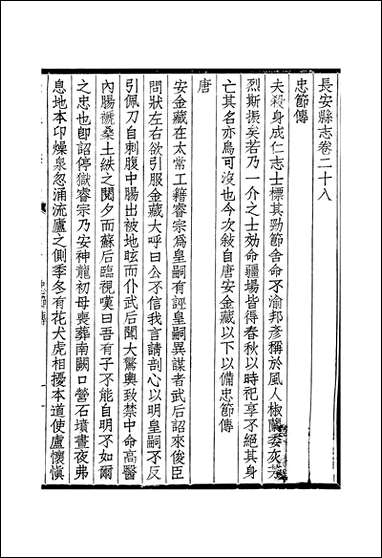 長安縣志卷二十八
忠節傳
夫殺身成仁志士標其勁節舍命不渝邦彥稱於風人椒蘭委灰芳
烈斯振矣若乃一介之士効命疆場皆得春秋以時祀享不絕其身
亡其名亦烏可沒也今次敘自唐安金藏以下以備忠節傳
唐
安金藏在太常工籍睿宗爲皇嗣有誣皇嗣異謀者武后詔來俊臣
問狀左右欲引服金藏大呼曰公不信我言請剖心以明皇嗣不反
引佩刀自刺腹中腸出被地眩而仆武后聞大驚輿致禁中命高醫
內腸褫桑土紩之閱夕而蘇后臨視嘆曰吾有子不能自明不如爾
之忠也卽詔停獄睿宗乃安神龍初母喪葬南闕口營石墳晝夜弗
息地本卬燥泉忽涌流廬之側季冬有花犬虎相擾本道使盧懷愼